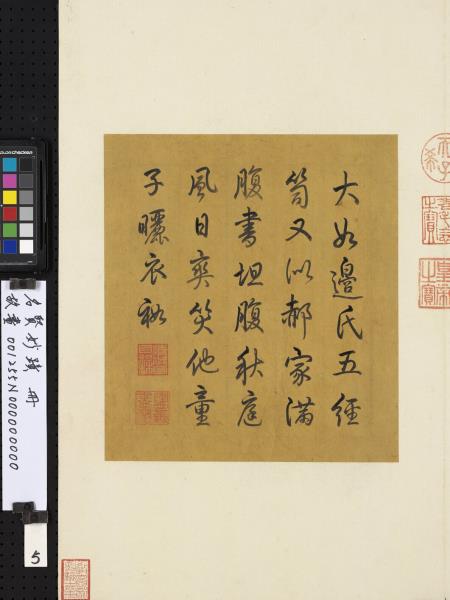 大如邊氏五經
笥又似郝家滿
腹書坦腹秋庭
風日爽笑他童
子曬衣裾
名賢妙蹟 冊
故書 001255N000000000
5